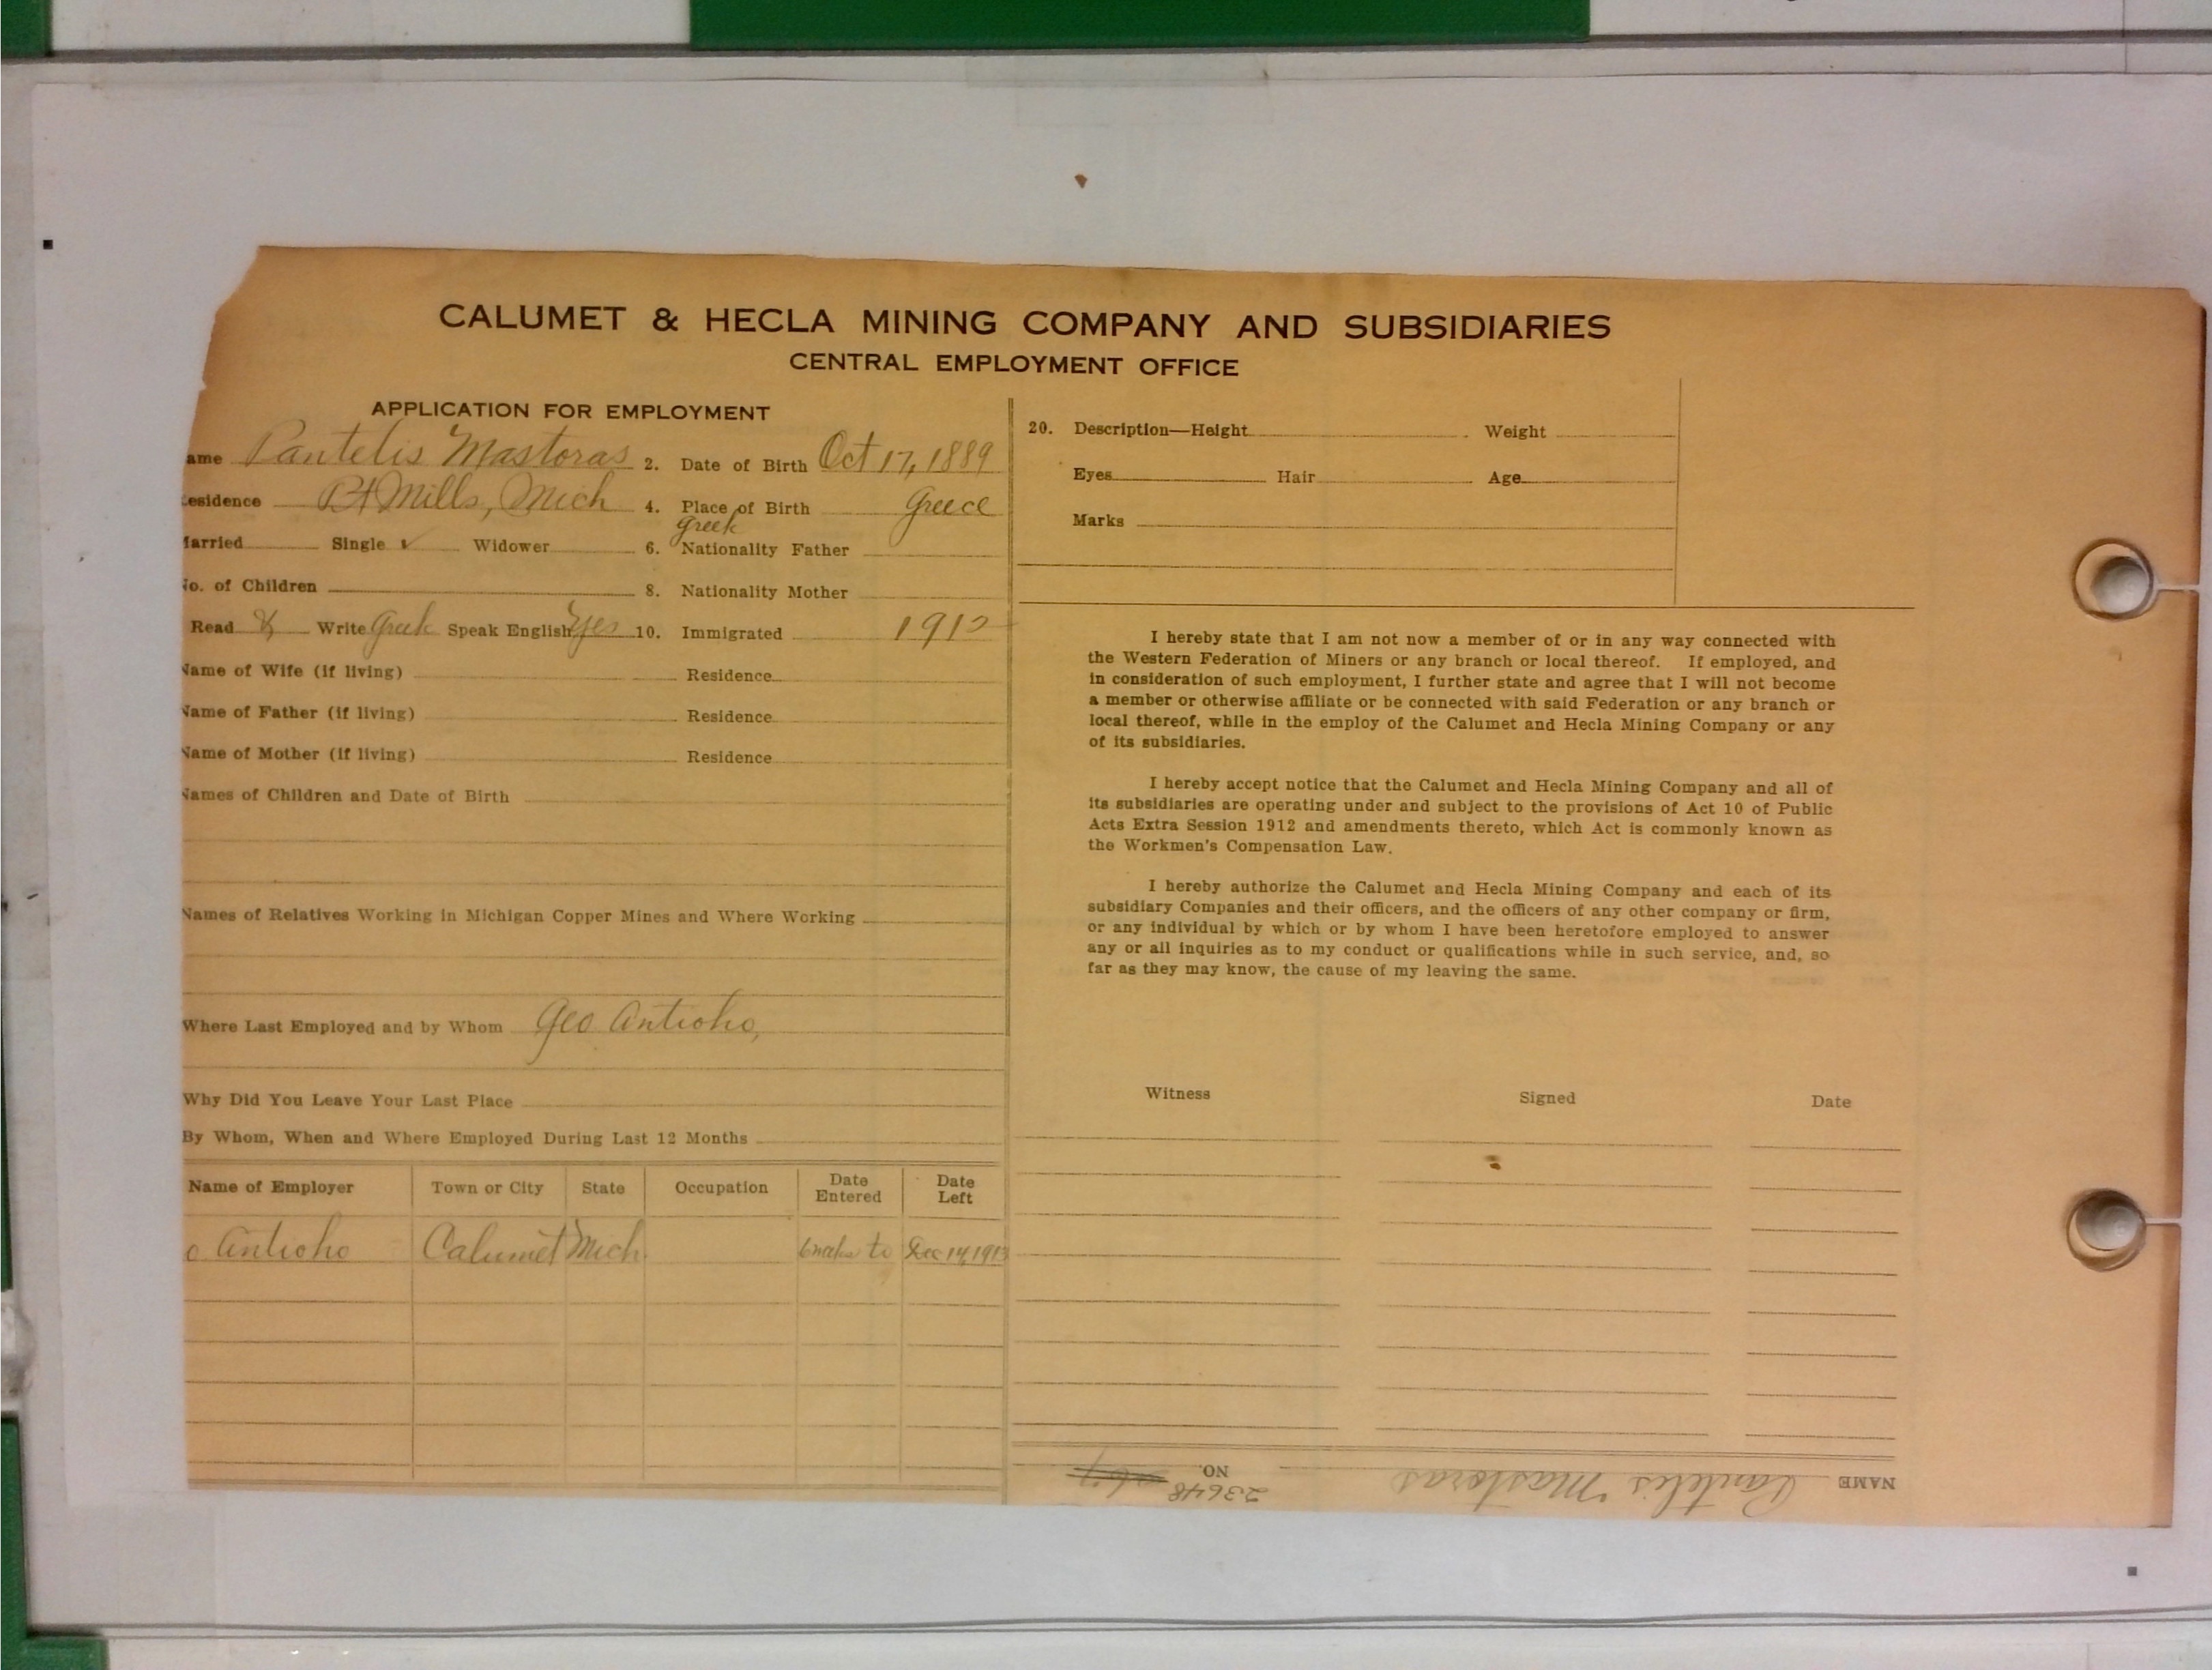 CALUMET & HECLA MINING COMPANY AND SUBSIDIARIES
CENTRAL EMPLOYMENT OFFICE
APPLICATION FOR EMPLOYMENT
ame Pantelis Mastoras 2. Date of Birth Oct 17, 1889
esidence Pt Mills, Mich 4. Place of Birth Greece
Greek
arried Single ✓ Widower 6. Nationality Father
No. of Children 8. Nationality Mother
Read & Write Greek Speak English Yes 10. Immigrated
Name of Wife (if living) Residence
Name of Father (if living) Residence
Name of Mother (if living) Residence
Names of Children and Date of Birth
Names of Relatives Working in Michigan Copper Mines and Where Working
Where Last Employed and by Whom Geo Antioho,
Why Did You Leave Your Last Place
By Whom, When and Where Employed During Last 12 Months
Name of Employer Town or City State Occupation Date Entered Date Left
o Antioho Calumet Mich. to Dec 14, 1913
20. Description—Height Weight
Eyes Hair Age
Marks
I hereby state that I am not now a member of or in any way connected with
the Western Federation of Miners or any branch or local thereof. If employed, and
in consideration of such employment, I further state and agree that I will not become
a member or otherwise affiliate or be connected with said Federation or any branch or
local thereof, while in the employ of the Calumet and Hecla Mining Company or any
of its subsidiaries.
I hereby accept notice that the Calumet and Hecla Mining Company and all of
its subsidiaries are operating under and subject to the provisions of Act 10 of Public
Acts Extra Session 1912 and amendments thereto, which Act is commonly known as
the Workmen's Compensation Law.
I hereby authorize the Calumet and Hecla Mining Company and each of its
subsidiary Companies and their officers, and the officers of any other company or firm,
or any individual by which or by whom I have been heretofore employed to answer
any or all inquiries as to my conduct or qualifications while in such service, and, so
far as they may know, the cause of my leaving the same.
Witness Signed Date
NAME Pantelis Mastoras NO. 23648